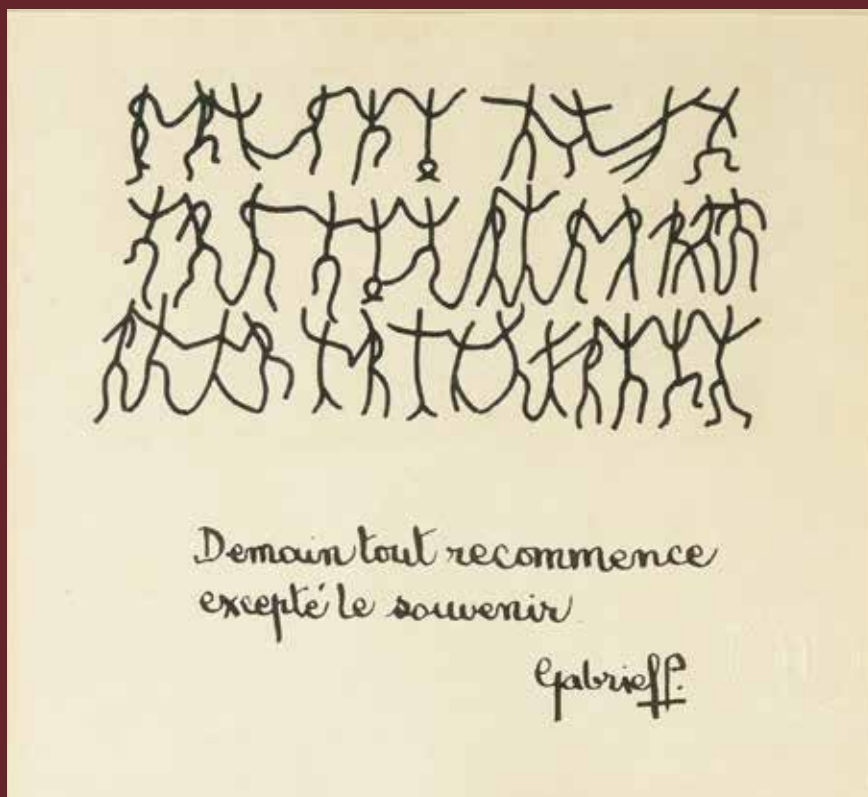 Demain tout recommence
excepté le souvenir
Gabriel P.